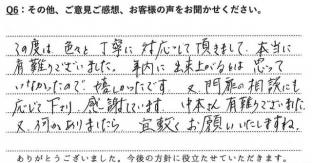 Q6：その他、ご意見ご感想、お客様の声をお聞かせください。
この度は色々と丁寧に対応して頂きまして、本当に
有難うございました。年内に出来上がるとは思って
いなかったので嬉しかったです。又、門扉の相談にも
応じて下さり、感謝しています。中本さん有難うございました。
又、何かありましたら宜敷くお願いいたしますね。
ありがとうございました。今後の方針に役立たせていただきます。